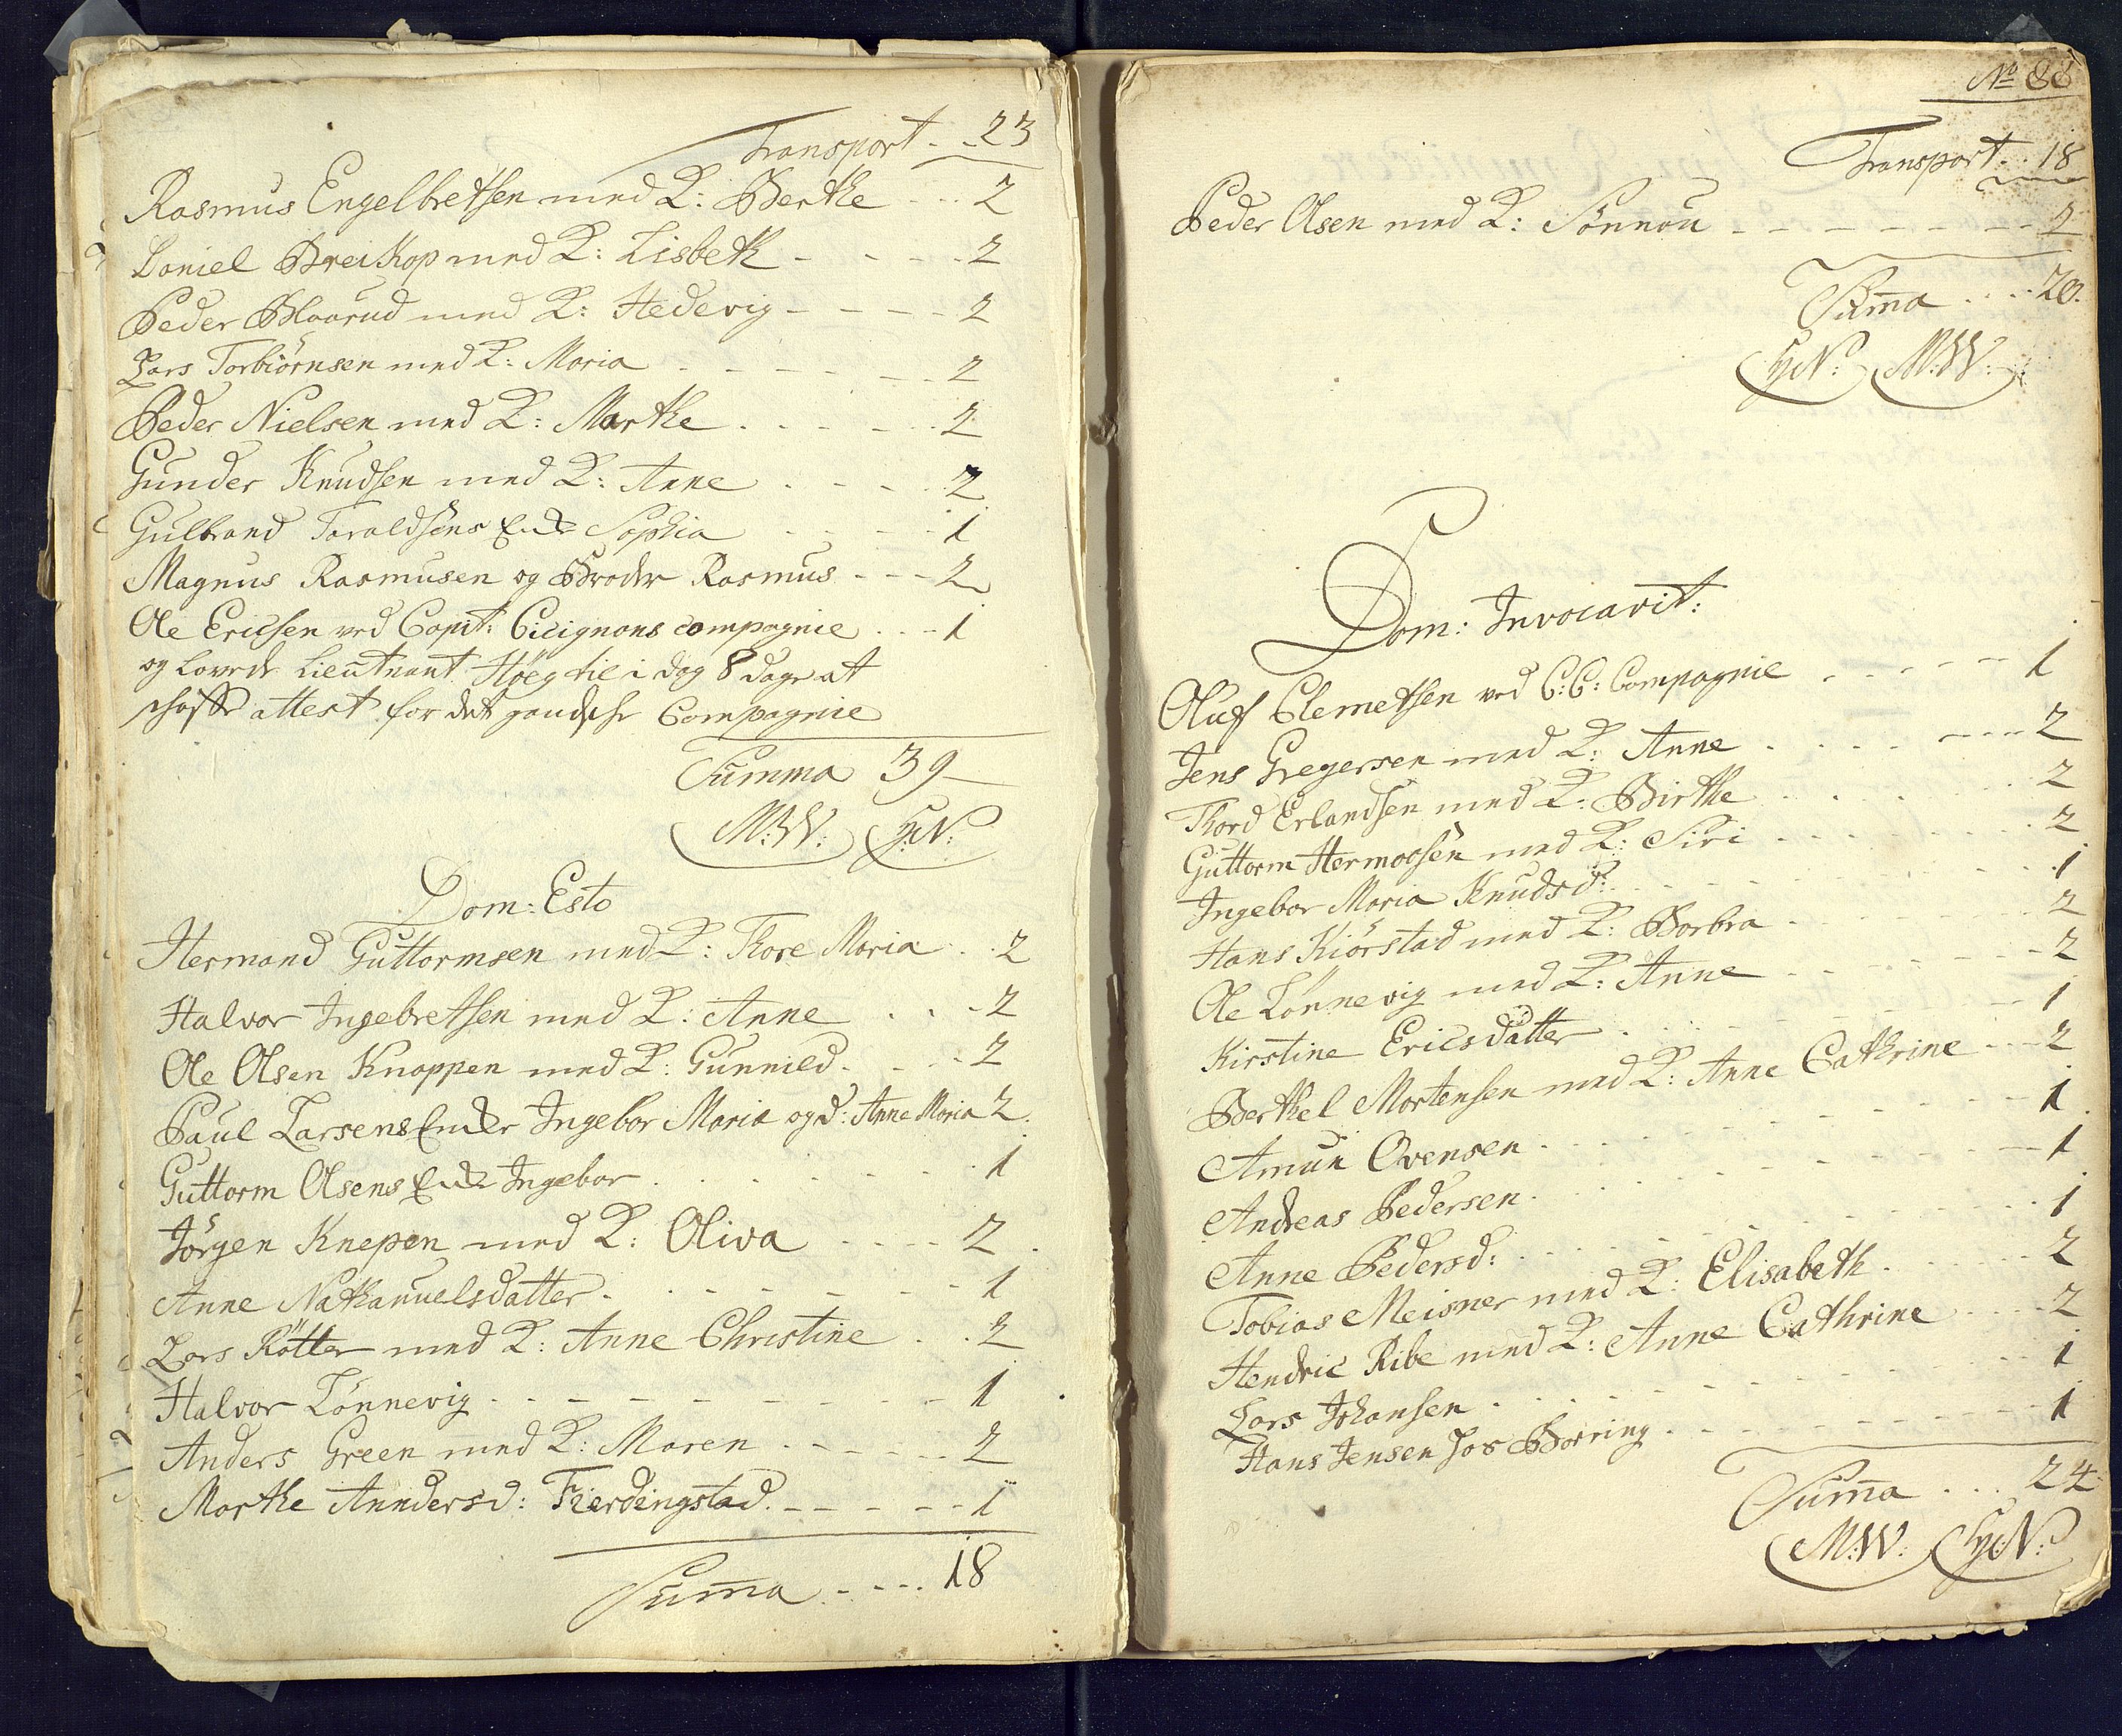 Transport - - 23
Rasmus Engelbretsen med K: Berthe - - - 2
Daniel Breikop med K: Lisbeth - - - - 2
Peder Blaarud med K: Hedevig - - - - 2
Lars Torbiörnsen med K: Maria - - - - - - 2
Peder Nielsen med K: Marthe - - - - - 2
Gunder Knudsen med K: Anne - - - - 2
Gulbrand Taraldsöns Enke Sophia - - - - 1
Magnus Rasmusen og Broder Rasmus - - - 2
Ole Ericsen ved Capit: Cicignons compagnie - - - 1
og lovede Lieutnant Höeg til i dag 8 dage at
skaffe attest for det gandske Compagnie
Summa 39
M:W: H:N:
Dom: Esto
Hermand Guttormsen med K: Thore Maria - - 2
Halvor Ingebretsen med K: Anne - - - 2
Ole Olsen Knappen med K: Gunnild - - - 2
Paul Larsens Encker Ingebor Maria og d: Anne Maria 2
Guttorm Olsens Enke Ingebor - - - - - - 1
Jörgen Knepen med K: Oliva - - - - 2
Anne Nathanuelsdatter - - - - - - 1
Lars Rötter med K: Anne Christine - - 2
Halvor Lönnevig - - - - - - - - 1
Anders Green med K: Maren - - - - - 2
Marthe Anndersd: Fierdingstad - - - - - 1
Suma - - - - 18
No 88
Transport - - 18
Peder Olsen med K: Sönnou - - - - - - - 2
Suma - - - 20.
H:N: M:W:
Dom: Invocavit:
Oluf Clemetsen ved C:C: Compagnie - - - - - 1
Jens Gregersen med K: Anne - - - - - - - 2
Thord Erlandsen med K: Birthe - - - - - - 2
Guttorm Hermoesen med K: Siri - - - - - - 2
Ingebor Maria Knudsd: - - - - - - - - 1
Hans Kiörstad med K: Barbra - - - - - - 2
Ole Lönnevig med K: Anne - - - - - - - 2
Kirstine Ericsdatter - - - - - - - - 1
Berthel Mortensen med K: Anne Cathrine - - - 2
Amun Ovensen - - - - - - - - - 1
Andreas Pedersen - - - - - - - - - 1
Anne Pedersd: - - - - - - - - - 1
Tobias Meisner med K: Elisabeth - - - - - 2
Hendric Ribe med K: Anne Cathrine - - - - 2
Lars Johansen - - - - - - - - - 1
Hans Jensen hos Borring - - - - - - - 1
Suma - - - 24
M:W: H:N: